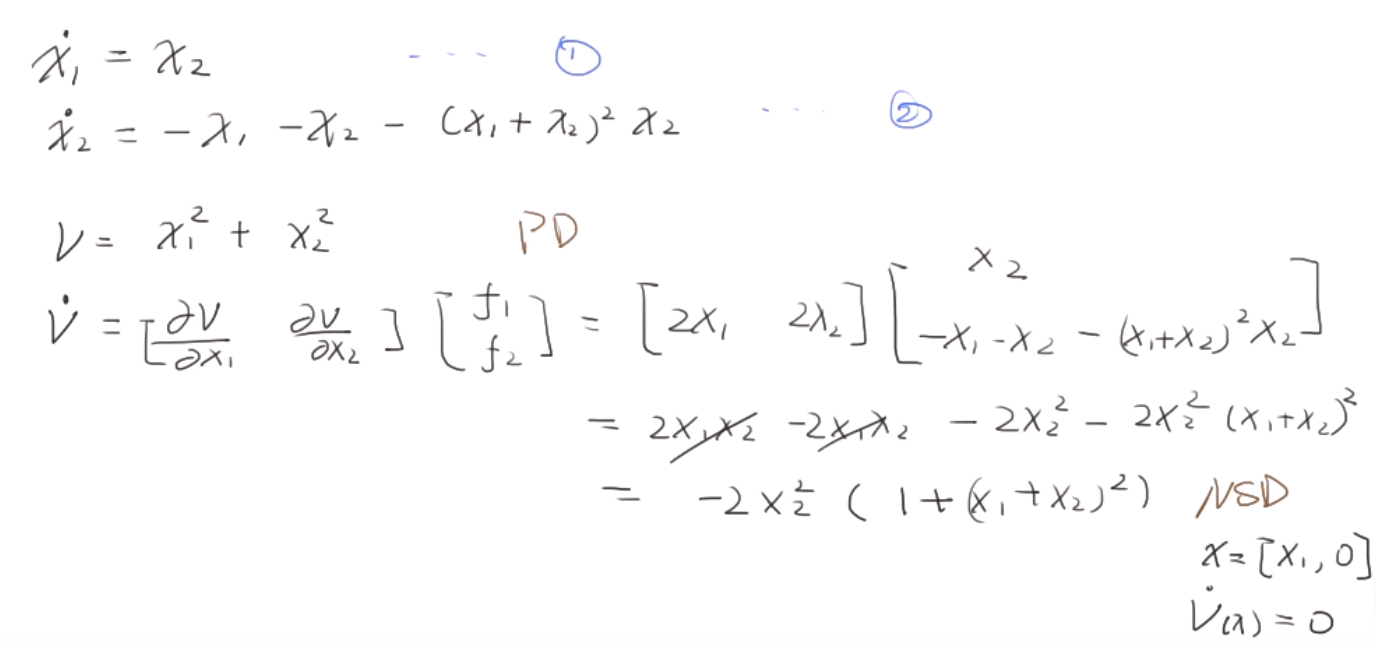 ẋ₁ = x₂ ---- ①
ẋ₂ = -x₁ -x₂ - (x₁ + x₂)² x₂ ···· ②
V = x₁² + x₂² PD
V̇ = [∂V/∂x₁ ∂V/∂x₂] [f₁ f₂] = [2x₁ 2x₂] [x₂ -x₁ -x₂ - (x₁+x₂)² x₂]
= 2x₁x₂ -2x₁x₂ - 2x₂² - 2x₂² (x₁+x₂)²
= -2x₂² (1+(x₁+x₂)²) NSD
x = [x₁, 0]
V̇(x) = 0